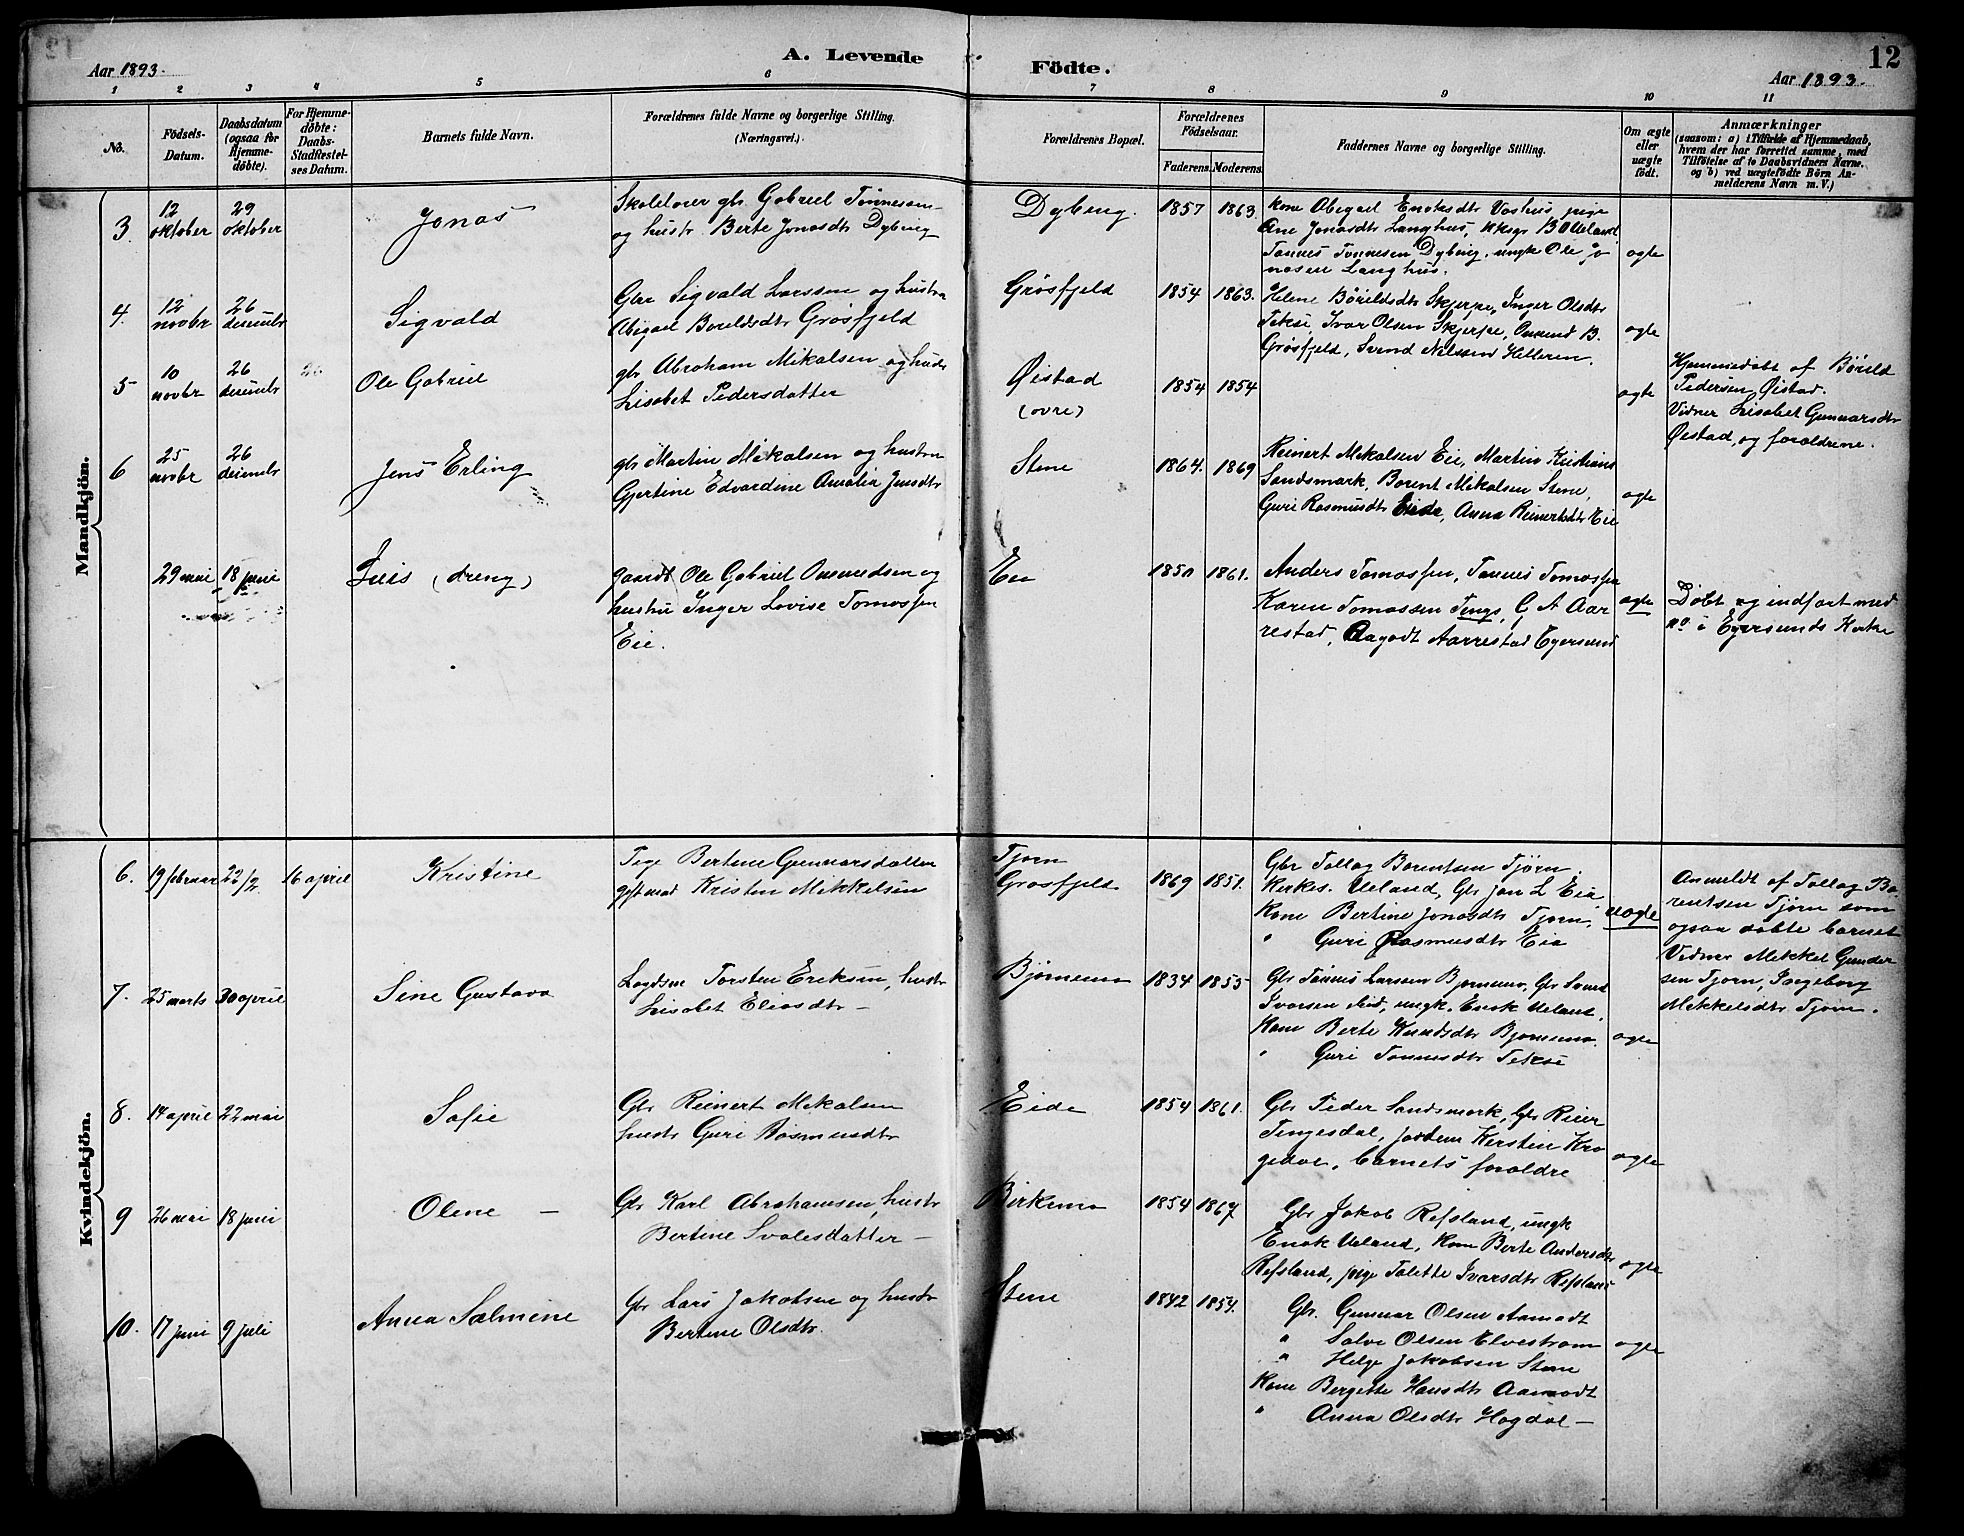 12
Aar 1893.
A. Levende Födte.
Aar 1893.
1 2 3 4 5 6 7 8 9 10 11
No.
Födsels-
Datum.
Daabsdatum
(ogsaa for
Hjemme-
døbte).
For Hjemme-
døbte:
Daabs-
Stadfæstel-
ses Datum.
Barnets fulde Navn.
Forældrenes fulde Navne og borgerlige Stilling.
(Næringsvei.)
Forældrenes Bopæl.
Forældrenes
Födselsaar.
Faderens. Moderens.
Faddernes Navne og borgerlige Stilling.
Om ægte
eller
uægte
født.
Anmærkninger
(saasom: a) i Tilfælde af Hjemmedaab,
hvem der har forrettet samme, med
Tilføielse af to Daabsvidners Navne,
og b) ved uægtefødte Börn An-
melderens Navn m. V.)
Mandkjön.
3
12
oktober
29
oktober
Jonas
Skolelærer gbr Gabriel Tønnesen
og hustr. Berte Jonasdtr Dybing
Dybing.
1857 1863.
Kone Abigael Enoksdtr Voshus, pige
Ane Jonasdtr Langhus, Kksgr B O Ueland
Tønnes Tønnesen Dybing, ungk Ole Jo
nasen Langhus.
ægte
4.
12
novbr
26
decembr
Sigvald
Gbr Sigvald Larssen og hustru
Abigael Børeldsdtr Grøsfjeld
Grøsfjeld
1854 1863.
Helene Børildsdtr Skjerpe, Inger Olsdtr
Tekse, Ivar Olsen Skjerpe, Omund B.
Grøsfjeld, Svend Nilssen Helleren.
ægte
5
10
novbr
26
decembr
26
Ole Gabriel
gbr Abraham Mikalsen og hustr
Lisabet Pedersdatter
Øistad
(øvre)
1854 1854
ægte
Hjemmedøbt af Børild
Pedersen Øistad.
Vidner Lisabet Gunnarsdtr
Øistad, og forældrene.
6
25
novbr
26
decembr
Jens Erling
gbr Martin Mikalsen og hustru
Gjertine Edvardine Amalia Jensdtr
Stene
1864. 1869
Reinert Mikalsen Eie, Martin Kristians
Sandsmark, Borent Mikalsen Stene,
Guri Rasmusdtr Eide, Anna Reinertsdtr Eie
ægte
29 mai
18 juni
(dreng)
gaardb Ole Gabriel Omundsen og
hustru Inger Lovise Tomassen
Eie.
Eie
1850 1861.
Anders Tomassen, Tønnes Tomassen
Karen Tomassen Tengs, C A Aar
restad, Aagodt Aarrestad Egersund
ægte
Døbt og indført med
no i Egersunds Kirke
Kvindekjön.
6.
19 februar
22/2.
16 april
Kristine
Pige Bertine Gunnarsdatter
gift mand Kristen Mikkelsen
Tjørn
Grøsfjeld
1869 1851.
Gbr Tollag Borentsen Tjørn,
Kirkes. Ueland, Gbr Jon L Eia
Kone Bertine Jonasdtr Tjørn,
" Guri Rasmusdtr Eia
uægte
Anmeldt af Tollag Bo
rentsen Tjørn som
ogsaa døbte barnet
Vidner Mikkel Gunder
sen Tjørn, Ingeborg
Mikkelsdtr Tjørn.
7.
25 marts
30 april
Sine Gustava
Lægdsm Torsten Eriksen, hustr
Lisabet Eliasdtr —
Bjørnemo
1834 1855
Gbr Tønnes Larssen Bjørnemo, Gbr Svend
Ivarsen ibid, ungk. Enok Ueland.
Kone Berte Knudsdtr Bjørnemo.
" Guri Tønnesdtr Tekse
ægte
8.
14 april
22 mai
Sofie
Gbr Reinert Mikalsen
hustr Guri Rasmusdtr
Eide
1854 1861.
Gbr Peder Sandsmark, Gbr Reier
Tengesdal, Jordem Kirsten Kro
gedal, barnets forældre
ægte
9
26 mai
18 juni
Olene —
Gbr Karl Abrahamsen, hustr
Bertine Svalesdatter —
Birkemo
1854 1867
Gbr Jakob Refsland, ungk
Enok Ueland, Kone Berte Andersdtr
Refsland, pige Talette Ivarsdtr Refsland
ægte
10.
17 juni
9 juli
Anna Salmine
Gbr Lars Jakobsen og hustr
Bertine Olsdtr.
Stene
1842 1854.
Gbr. Gunnar Olsen Aamodt
" Salve Olsen Elvestrøm
" Helge Jakobsen Stene
Kone Bergitte Hansdtr Aamodt
" Anna Olsdtr Høgdal —
ægte